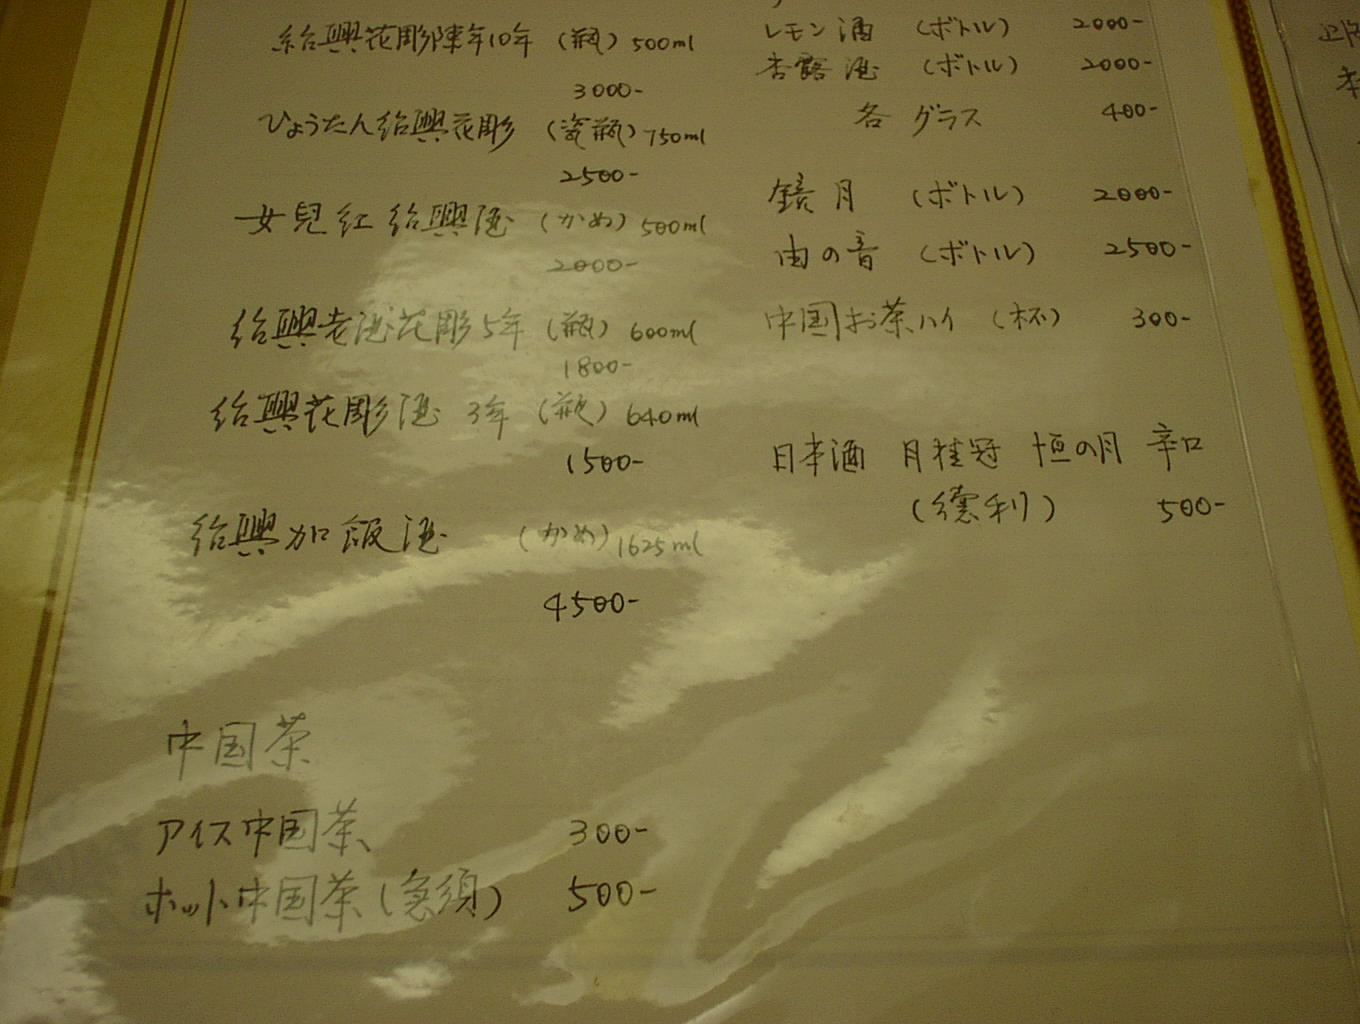 紹興花彫陳年10年 (瓶) 500ml
3000-
ひょうたん紹興花彫 (瓷瓶) 750ml
2500-
女兒紅 紹興酒 (かめ) 500ml
2000-
紹興老酒花彫5年 (瓶) 600ml
1800-
紹興花彫酒 3年 (瓶) 640ml
1500-
紹興加飯酒 (かめ) 1625ml
4500-
中国茶
アイス中国茶 300-
ホット中国茶 (急須) 500-
レモン酒 (ボトル) 2000-
杏露酒 (ボトル) 2000-
各 グラス 400-
鏡月 (ボトル) 2000-
由の音 (ボトル) 2500-
中国お茶ハイ (杯) 300-
日本酒 月桂冠 恒の月 辛口
(德利) 500-